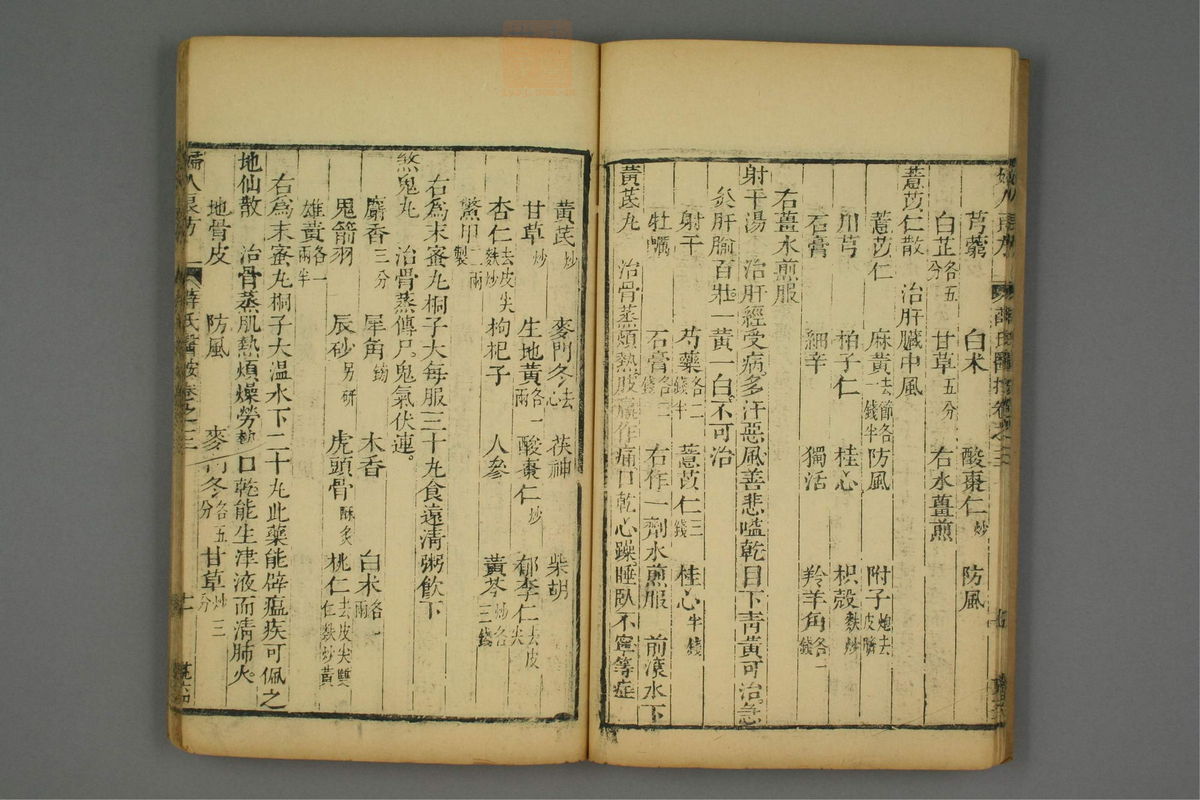 芎藭 白术 酸棗仁炒 防風
白芷各五分 甘草五分 右水薑煎
薏苡仁散 治肝臟中風
薏苡仁 麻黃去節各一錢半 防風 附子炮去皮臍
川芎 柏子仁 桂心 枳殼麩炒
石膏 細辛 獨活 羚羊角各一錢
右薑水煎服
射干湯 治肝經受病多汗惡風善悲嗌乾目下靑黃可治急
灸肝腧百壯一黃一白不可治
射干 芍藥各二錢半 薏苡仁三錢 桂心半錢
牡蠣 石膏各二錢 右作一劑水煎服 前滾水下
黃芪丸 治骨蒸煩熱股痛作痛口乾心躁睡臥不寧等症
黃芪炒 麥門冬去心 茯神 柴胡
甘草炒 生地黃各一兩 酸棗仁炒 郁李仁去皮尖
杏仁去皮尖麩炒 枸杞子 人參 黃芩炒各三錢
鱉甲一兩製
右為末蜜丸桐子大每服三十丸食遠清粥飲下
煞鬼丸 治骨蒸傳尸鬼氣伏連。
麝香三分 犀角鎊 木香 白术各一兩
鬼箭羽 辰砂另研 虎頭骨酥炙 桃仁去皮尖雙仁麩炒黃
雄黃各一兩半
右為末蜜丸桐子大溫水下二十丸此藥能辟瘟疾可佩之
地仙散 治骨蒸肌熱煩燥勞熱口乾能生津液而清肺火。
地骨皮 防風 麥門冬各五分 甘草炒三分
婦人良方 薛氏醫按卷之三 十一